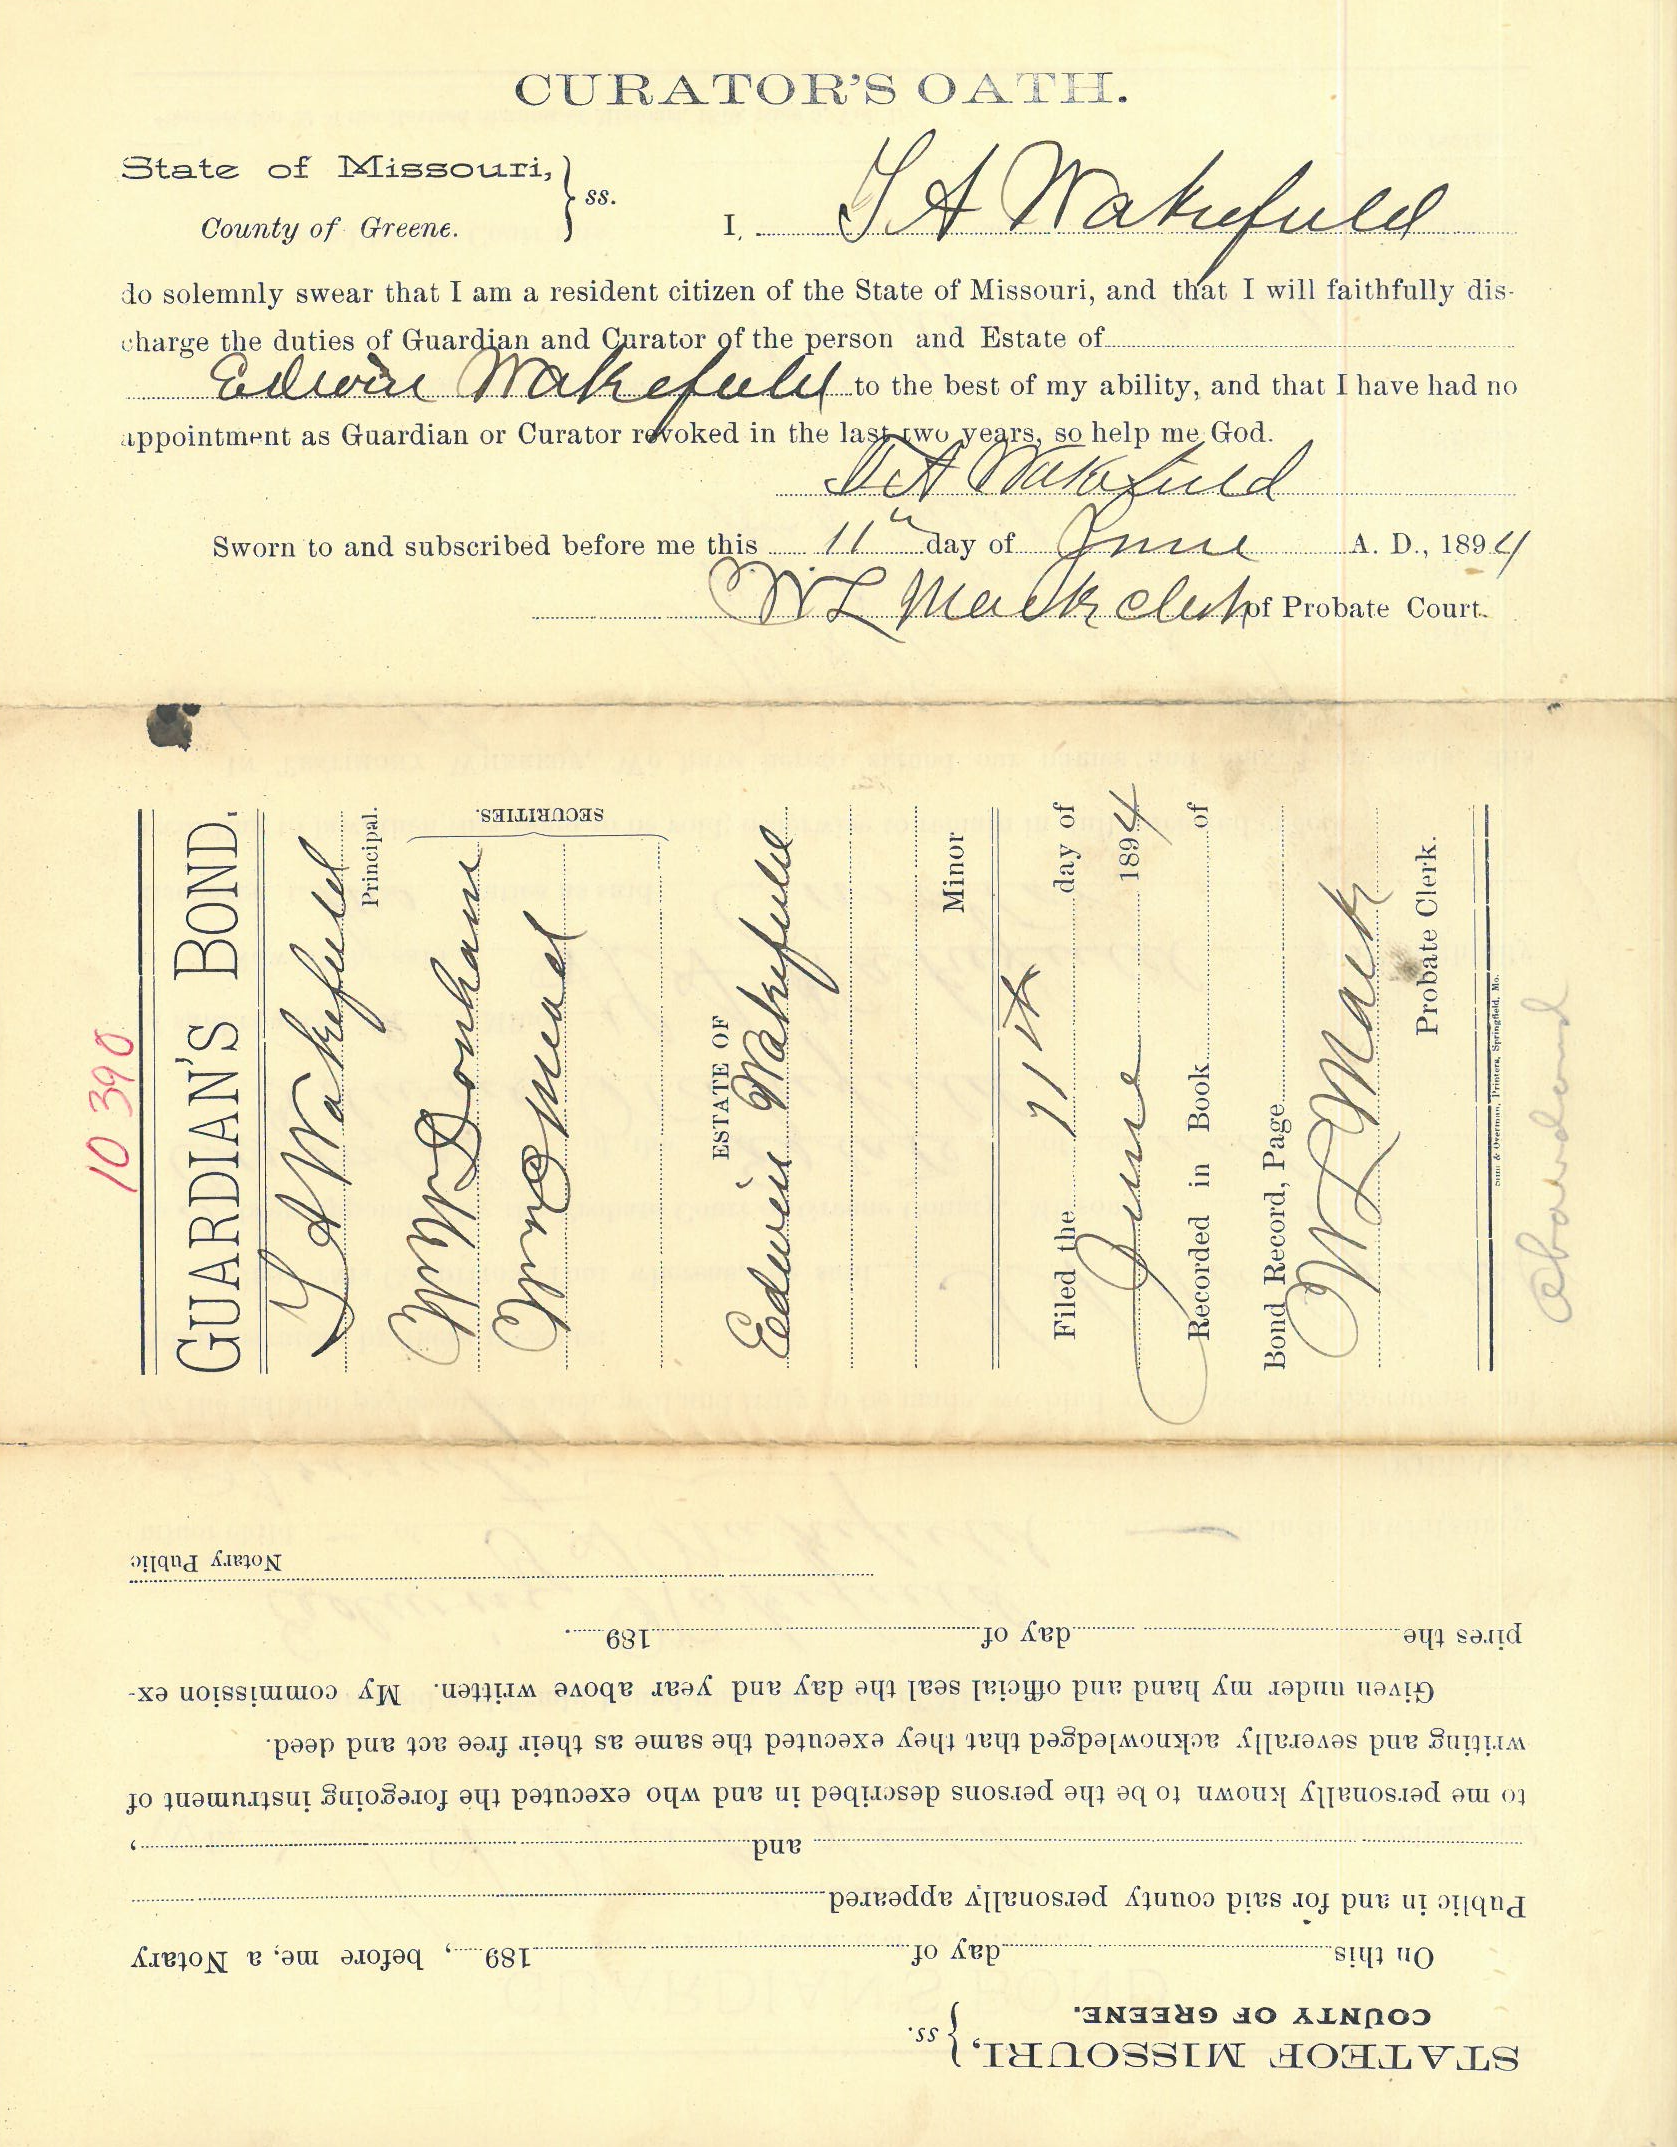 CURATOR'S OATH.
State of Missouri, } ss.
County of Greene.
I, S A Wakefield
do solemnly swear that I am a resident citizen of the State of Missouri, and that I will faithfully dis-
charge the duties of Guardian and Curator of the person and Estate of
Edwin Wakefield to the best of my ability, and that I have had no
appointment as Guardian or Curator revoked in the last two years, so help me God.
S A Wakefield
Sworn to and subscribed before me this 11" day of June A. D., 1894
W L Mack clerk of Probate Court.
10390
GUARDIAN'S BOND.
S A Wakefield
Principal.
Donham
Mead
SECURITIES.
ESTATE OF
Edwin Wakefield
Minor
Filed the 11th day of
June 1894
Recorded in Book of
Bond Record, Page
W L Mack
Probate Clerk.
& Overton, Printers, Springfield, Mo.
STATE OF MISSOURI, } ss.
COUNTY OF GREENE.
On this day of 189 , before me, a Notary
Public in and for said county personally appeared
and ,
to me personally known to be the persons described in and who executed the foregoing instrument of
writing and severally acknowledged that they executed the same as their free act and deed.
Given under my hand and official seal the day and year above written. My commission ex-
pires the day of 189 .
Notary Public